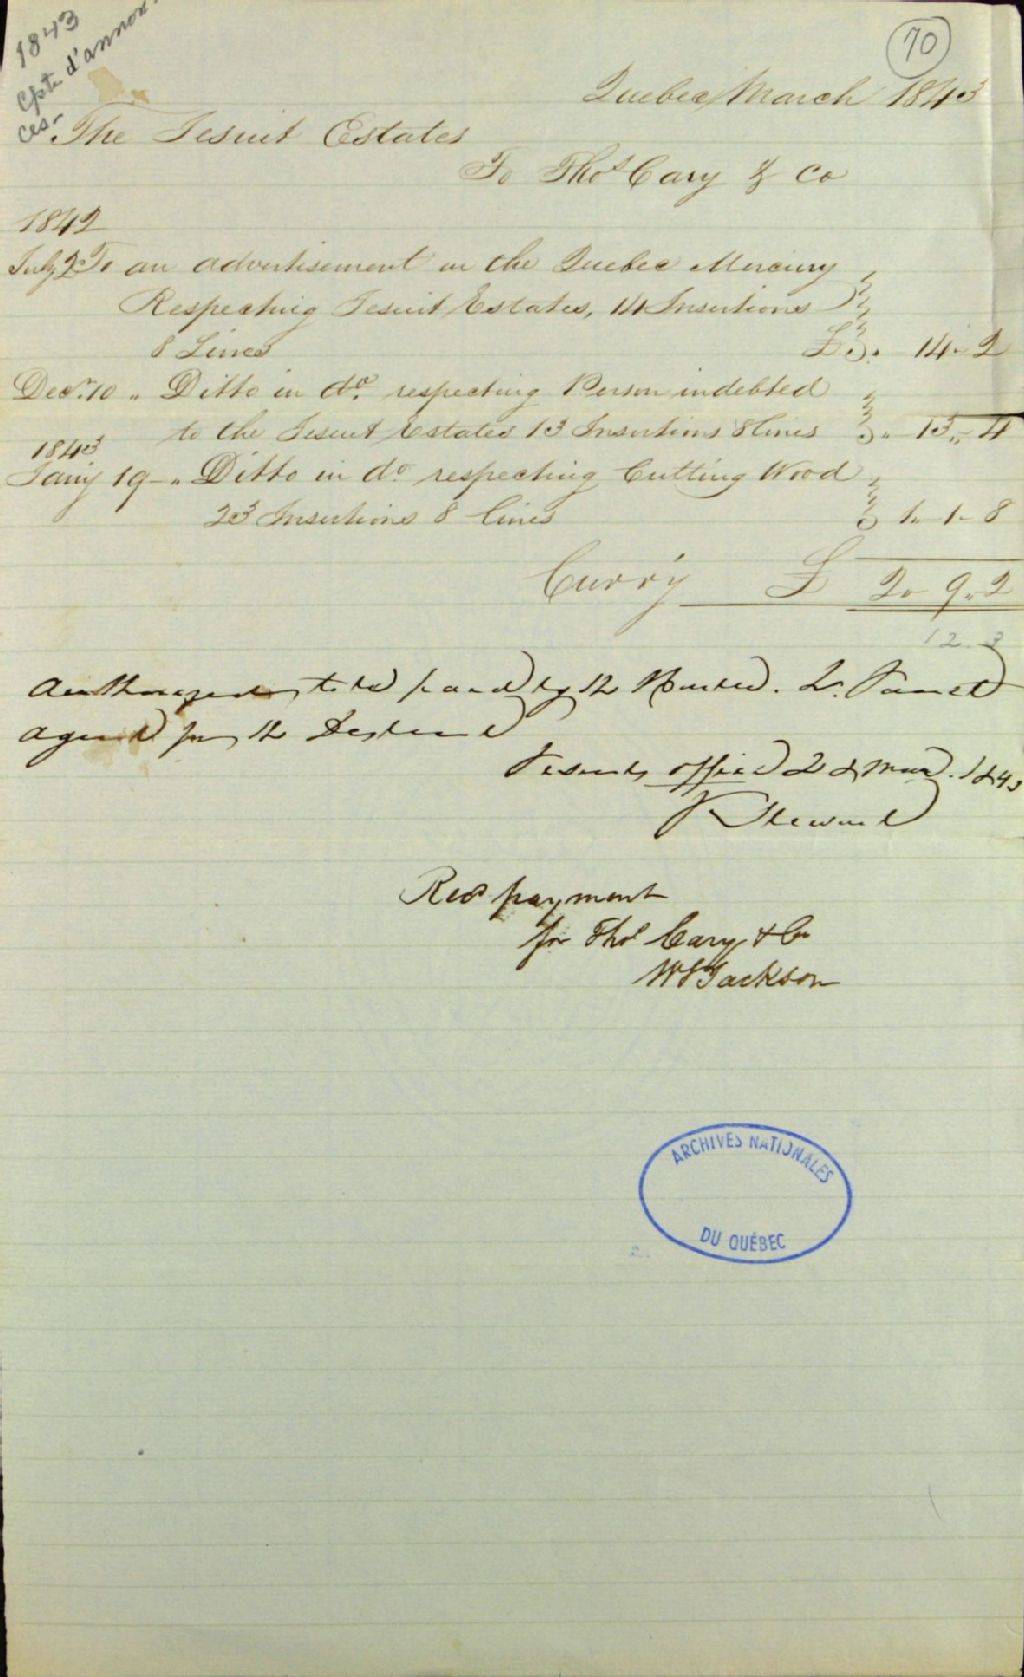 1843
Cpte d'annon-
ces-
70
Quebec March 1843
The Jesuit Estates
To Thos Cary & Co
1842
July 2 To an advertisement in the Quebec Mercury
Respecting Jesuit Estates, 14 Insertions
8 Lines £ " 14 " 2
Decr. 10 " Ditto in do. respecting Person indebted
to the Jesuit Estates 13 Insertions 8 lines " 13 " 4
1843
Jany 19 - " Ditto in do respecting Cutting Wood
23 Insertions 8 lines 1 " 1 " 8
Curry £ 2 " 9 " 2
12.3
to be paid by the Honble. L. Panet
agent for the
Jesuits office 28 Mar. 1843
J Stewart
Recd payment
for Thos Cary & Co
WS Jackson
ARCHIVES NATIONALES
DU QUÉBEC